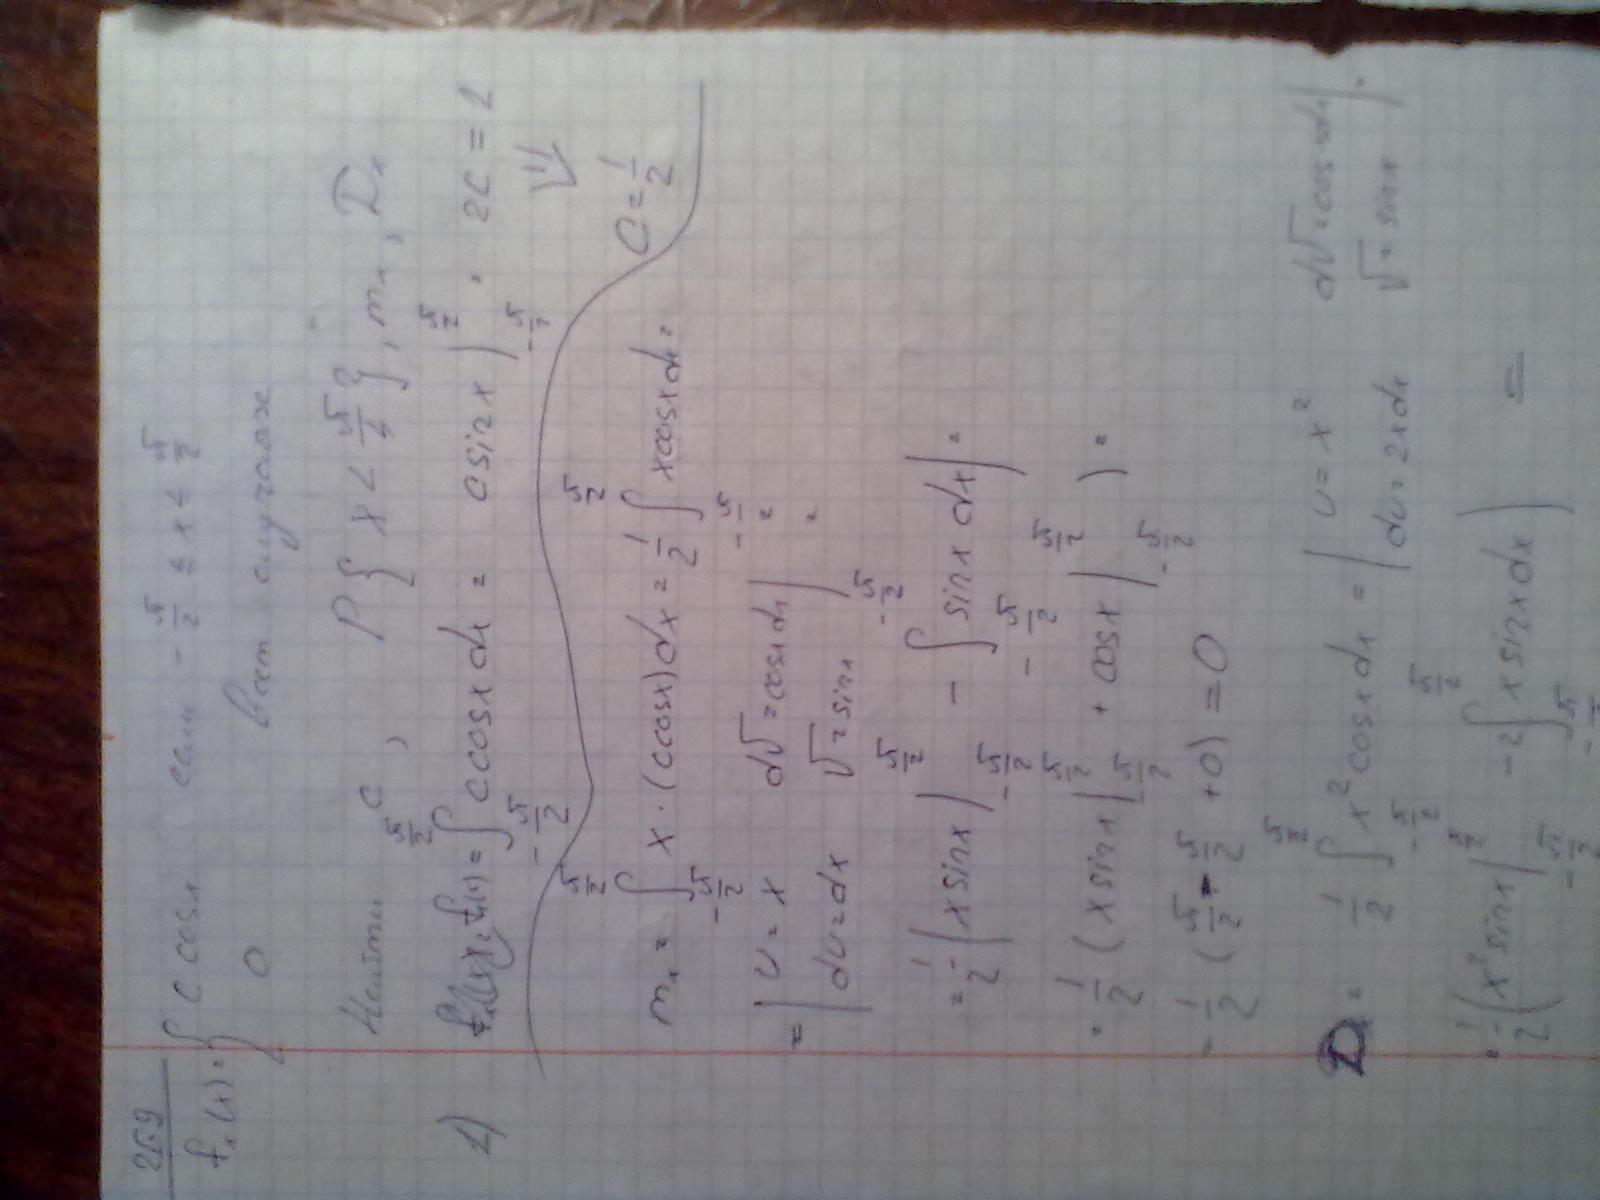 269
fₓ(x) = { C cosx если -π/2 ≤ x ≤ π/2
0 в ост случаях
Найти C, P{ x < π/4 }, mₓ, Dₓ
1) f(x) = ∫_{-π/2}^{π/2} C cosx dx = c sinx |_{-π/2}^{π/2} . 2C = 1
⇓
C = 1/2
mₓ = ∫_{-π/2}^{π/2} x · (c cosx) dx = 1/2 ∫_{-π/2}^{π/2} x cosx dx =
= | u = x dV = cosx dx | =
du = dx V = sinx
= 1/2 ( x sinx |_{-π/2}^{π/2} - ∫_{-π/2}^{π/2} sinx dx ) =
= 1/2 ( x sinx |_{-π/2}^{π/2} + cosx |_{-π/2}^{π/2} ) =
= 1/2 ( π/2 - π/2 + 0) = 0
D = 1/2 ∫_{-π/2}^{π/2} x² cosx dx = | u = x² dV = cosx dx |
du = 2x dx V = sinx
= 1/2 ( x² sinx |_{-π/2}^{π/2} - 2 ∫_{-π/2}^{π/2} x sinx dx ) =